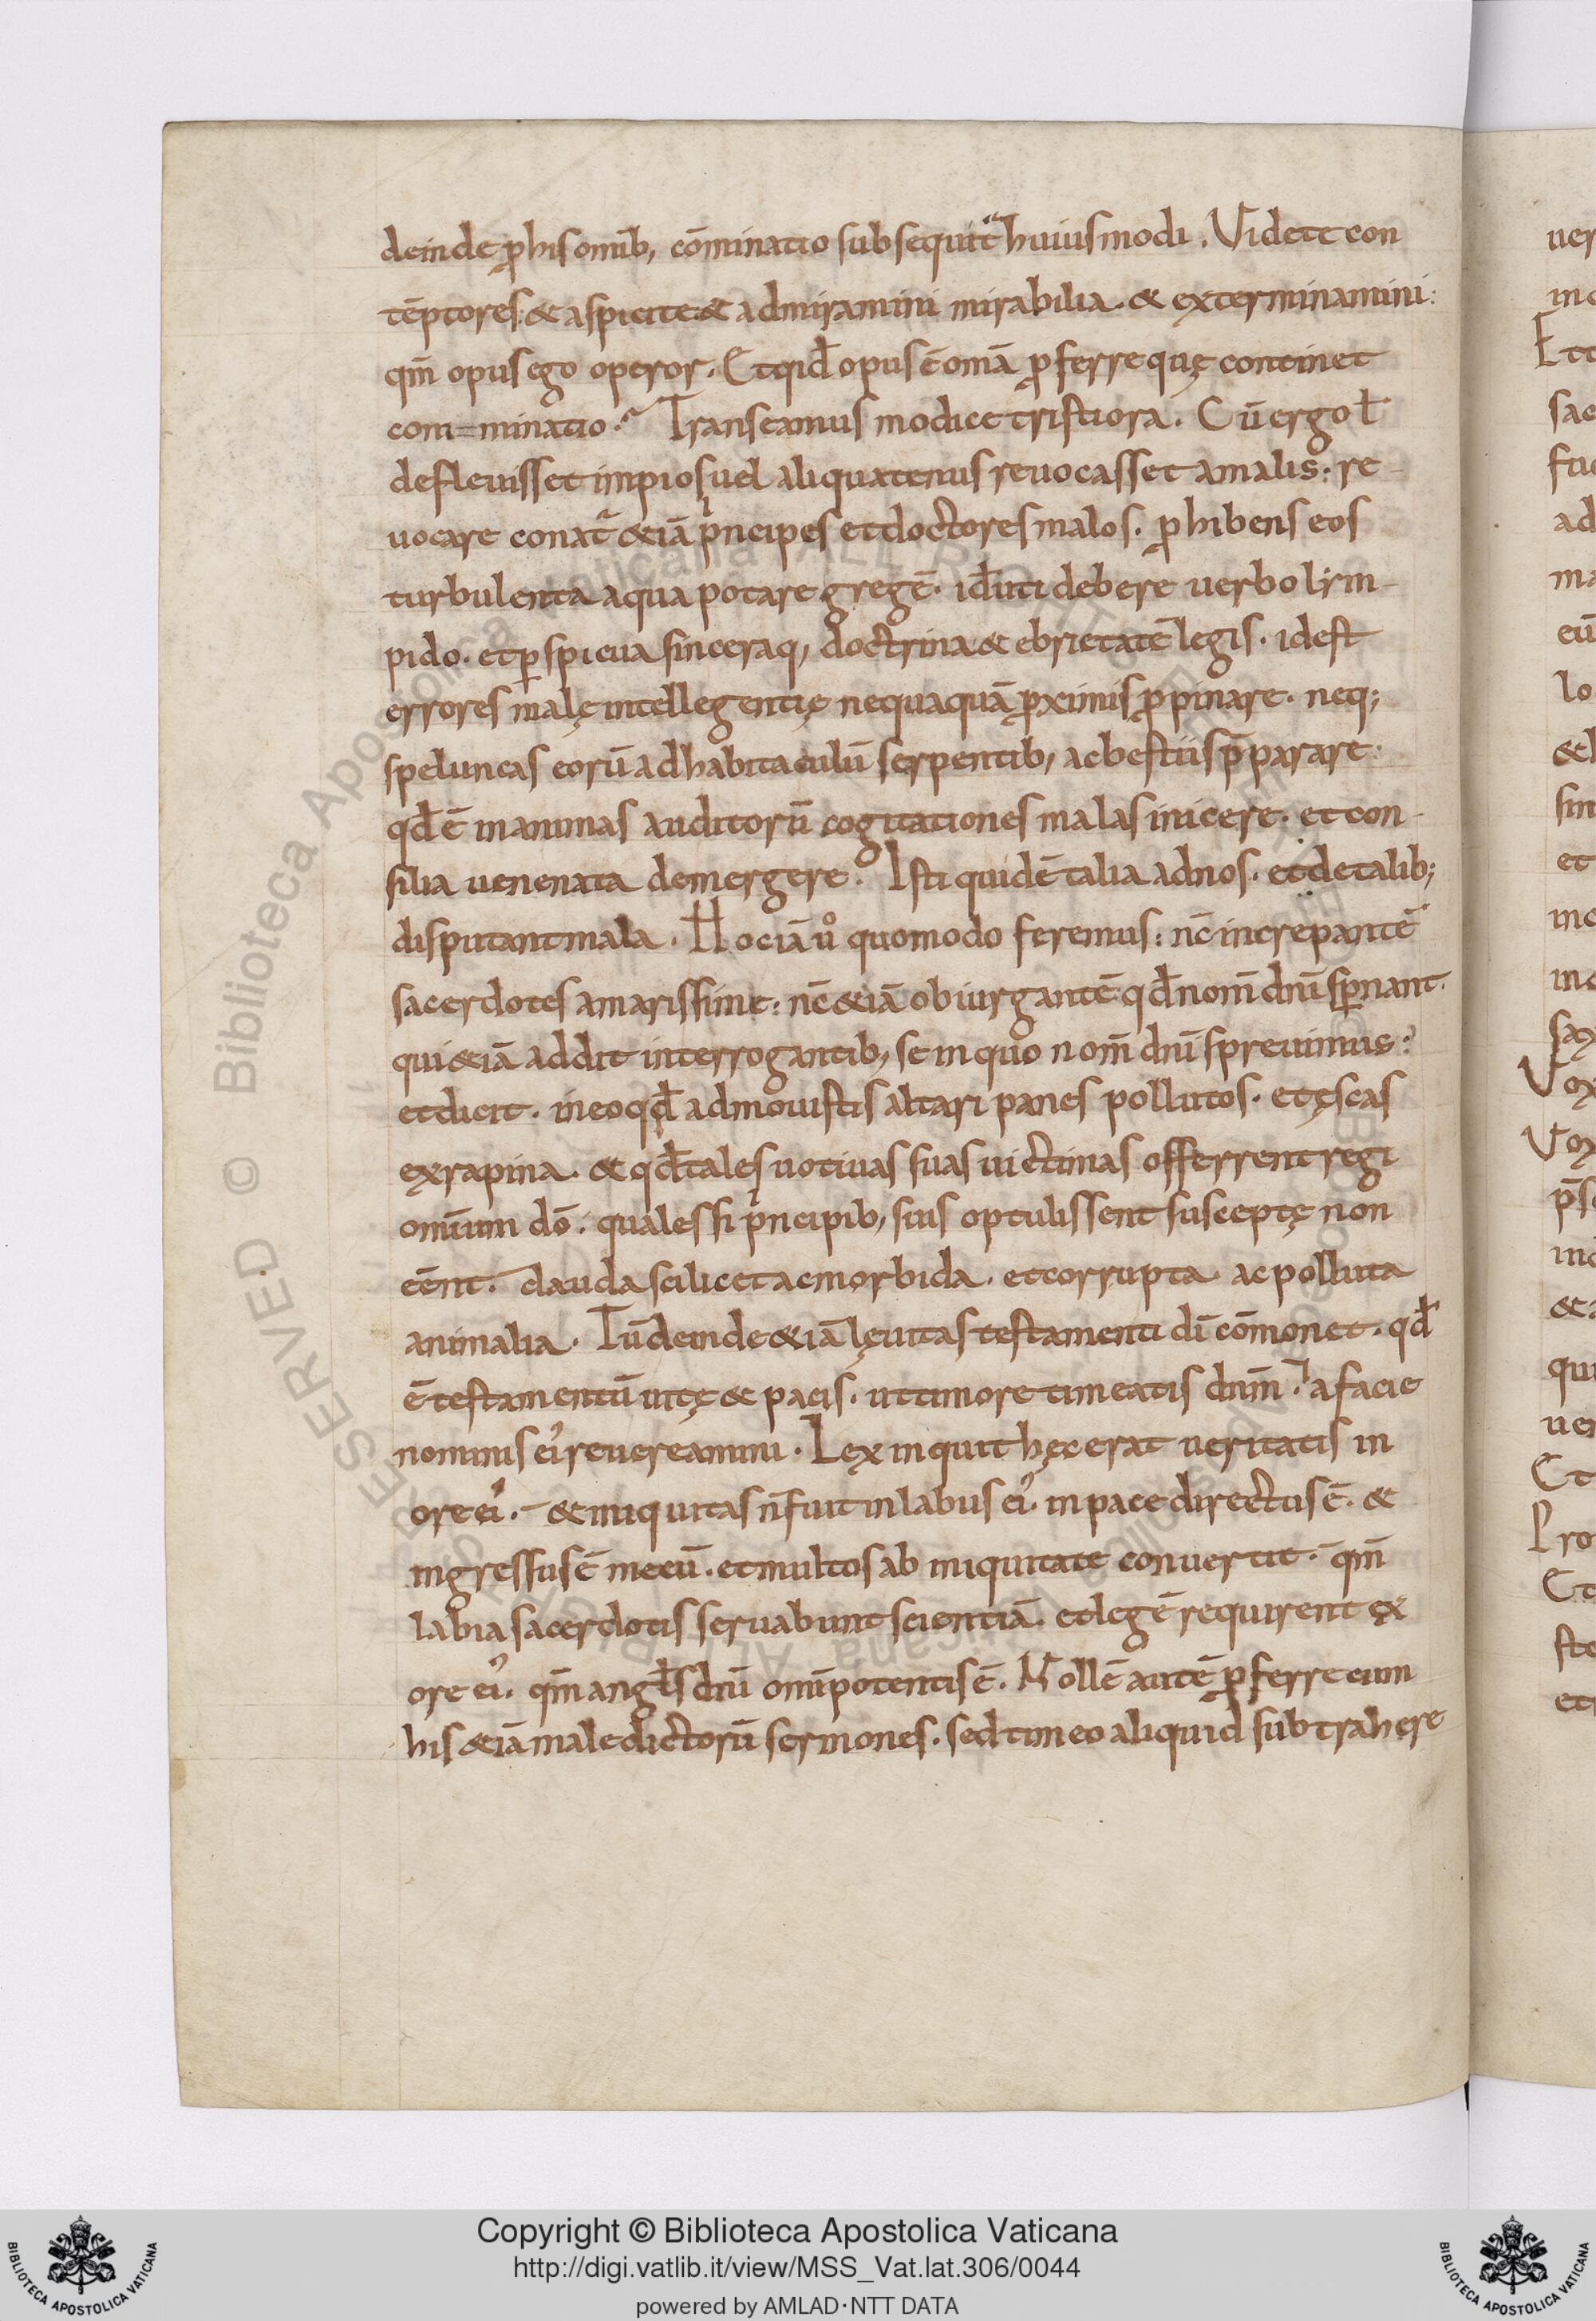 deinde ꝓ hisomīb; cōminatio subsequit̃ huiusmodi. Videte con
tēptores: & aspicite & admiramini mirabilia. & exterminamini:
qm̄ opus ego operor. Et qid̄ opus ē omā ꝓferre quę continet
com=minatio. Transeamus modice tristiora. Cū ergo ł
deflevisset impios uel aliquatenus reuocasset amalis: re-
uocare conat̃ &iā pͥncipes et doctores malos. ꝓhibens eos
turbulenta aqua potare gregē. id̄ uti debere uerbo lim-
pido. et ꝑspicua sinceraq; doctrina & ebrietatē legis. idest
errores malę intellegentię nequaquā ꝓximis ꝓpinare. neq;
speluncas eorū ad habitaculū serpentib; ac bestiis p̄parare.
qd̄ ē in animas auditorū cogitationes malas inicere. et con-
silia uenenata demergere. Isti quidē talia adnos. et detalib;
disputant mala. Hoc iā ů quomodo feremus: nē increpantē
sacerdotes amarissime: nē &iā obiurgantē qd̄ nom̄ dnī spernant.
qui &iā addit interrogantib; se in quo nom̄ dnī spreuimus?
et dicit. in eo qd̄ admouistis altari panes pollutos. et ęscas
ex rapina. & qd̄ tales uotiuas suas uictimas offerrent regi
omīum dō. quales si pͥncipib; suis optulissent susceptę non
eēnt. clauda scilicet ac morbida. et corrupta. ac polluta
animalia. Tū deinde &iā lęuitas testamenti dī cōmonet. qd̄
ē testamentū uitę & pacis. ut timore timeatis dnm̄. a facie
nominis ei᾽ reuereamini. Lex inquit hęc erat ueritatis in
ore ei᾽. & iniquitas n̄ fuit in labiis ei᾽. in pace directus ē. &
ingressus ē mecū. et multos ab iniquitate conuertit. qm̄
labia sacerdotis seruabunt scientiā. et legē requirent ex
ore ei᾽. qm̄ angłs dnī omīpotentis ē. Nollē autē ꝓferre cum
his &iā maledictorū sermones. sed timeo aliquid subtrahere
Copyright © Biblioteca Apostolica Vaticana
http://digi.vatlib.it/view/MSS_Vat.lat.306/0044
powered by AMLAD·NTT DATA